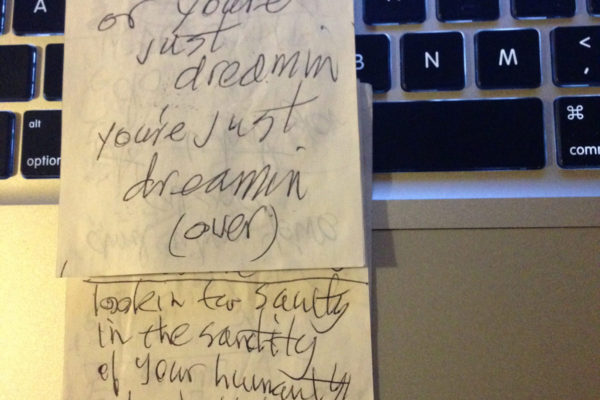 A
B
N
M
<
,
alt
option
⌘
comm
or you're
just
dreamin
you're just
dreamin
(over)
lookin for sanity
in the sanctity
of your humanity